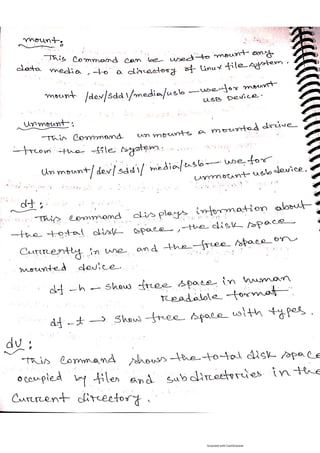 mount:
This command can be used to mount any
data media, to a directory of linux file system.
mount /dev/sdd1/media/usb — use for mount
USB DEVICE.
Unmount:
This command unmounts a mounted drive
from the file system.
Un mount/dev/sdd1/ media/usb — use for
unmount usb device.
df:
This command displays information about
the total disk space, the disk space
currently in use and the free space on
mounted device.
df -h — show free space in human
readable format
df -t → show free space with types.
du:
This command shows the total disk space
occupied by files and subdirectories in the
current directory.
Scanned with CamScanner